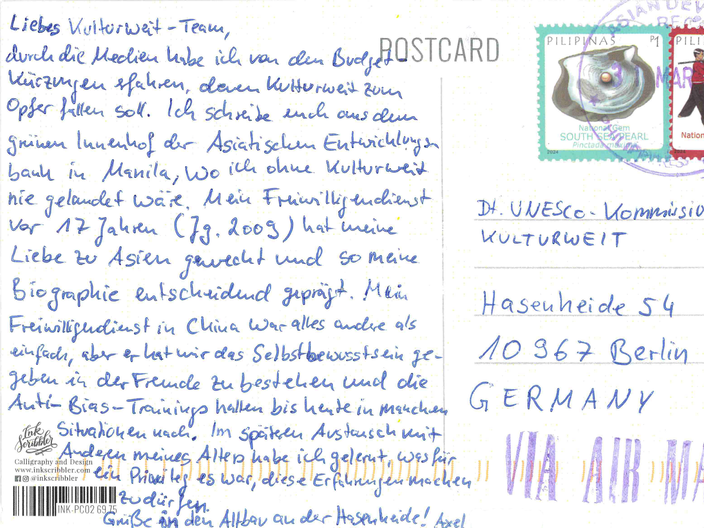 Liebes Kulturweit-Team,
durch die Medien habe ich von den Budget-
kürzungen erfahren, denen Kulturweit zum
Opfer fallen soll. Ich schreibe euch aus dem
grünen Innenhof der Asiatischen Entwicklungs
bank in Manila, wo ich ohne Kulturweit
nie gelandet wäre. Mein Freiwilligendienst
vor 17 Jahren (Jg. 2009) hat meine
Liebe zu Asien geweckt und so meine
Biographie entscheidend geprägt. Mein
Freiwilligendienst in China war alles andere als
einfach, aber er hat mir das Selbstbewusstsein ge-
geben in der Fremde zu bestehen und die
Anti-Bias-Trainings hallen bis heute in manchen
Situationen nach. Im späteren Austausch mit
Anderen meines Alters habe ich gelernt, was für
ein Privileg es war, diese Erfahrungen machen
zu dürfen.
Grüße in den Altbau an der Hasenheide! Axel
Ink
Scribbler
Calligraphy and Design
www.inkscribbler.com
@inkscribbler
INK-PC02 69.75
POSTCARD
PILIPINAS P1
National Gem
SOUTH SEA PEARL
Pinctada maxima
PILI
Nation
ASIAN DEV
MAR
PHILIPPINES
Dt. UNESCO-Kommissio
KULTURWEIT
Hasenheide 54
10967 Berlin
GERMANY
VIA AIR MA